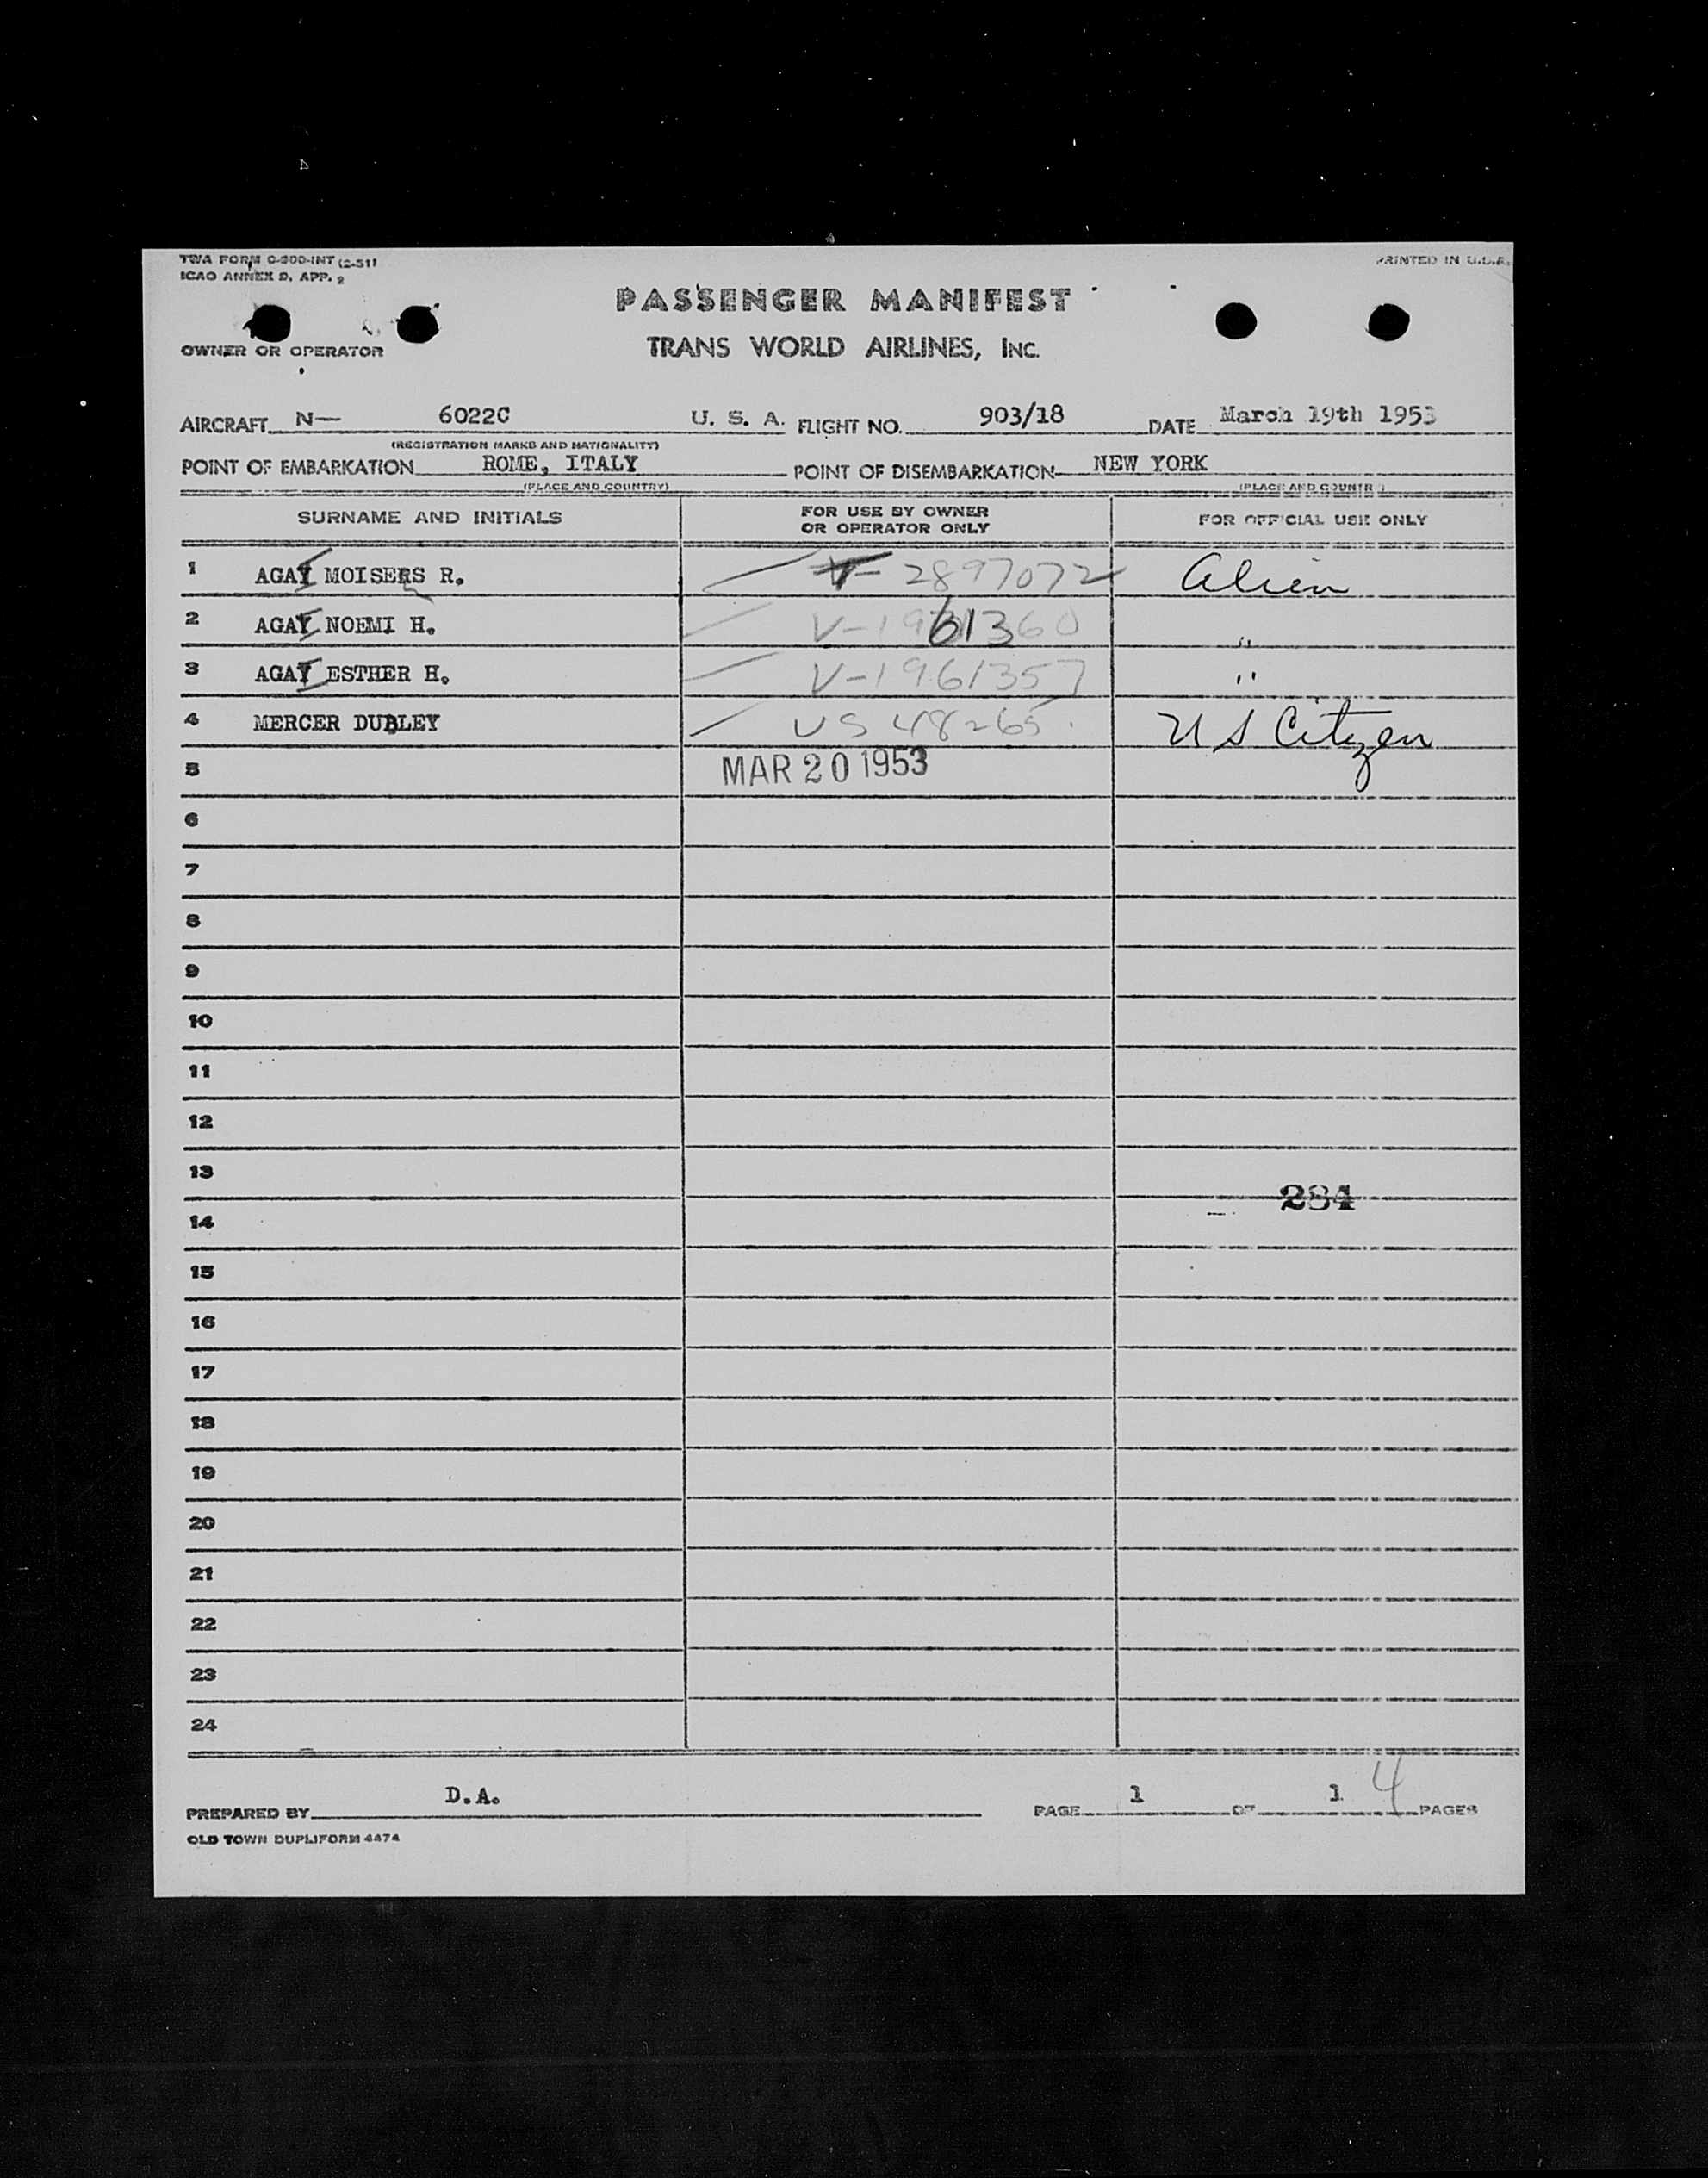 TWA FORM O-300-INT (2-51)
PRINTED IN U.S.A.
ICAO ANNEX 9, APP. 2
PASSENGER MANIFEST
OWNER OR OPERATOR
TRANS WORLD AIRLINES, INC.
AIRCRAFT N— 6022C U. S. A. FLIGHT NO. 903/18 DATE March 19th 1953
(REGISTRATION MARKS AND NATIONALITY)
POINT OF EMBARKATION ROME, ITALY POINT OF DISEMBARKATION NEW YORK
(PLACE AND COUNTRY) (PLACE AND COUNTRY)
SURNAME AND INITIALS FOR USE BY OWNER OR OPERATOR ONLY FOR OFFICIAL USE ONLY
1 AGAY MOISERS R. V-2897072 Alien
2 AGAY NOEMI H. V-1961360 "
3 AGAY ESTHER H. V-1961357 "
4 MERCER DUDLEY US 48265 US Citizen
5 MAR 20 1953
6
7
8
9
10
11
12
13
284
14
15
16
17
18
19
20
21
22
23
24
PREPARED BY D.A. PAGE 1 OF 1 4 PAGES
OLD TOWN DUPLIFORM 4474